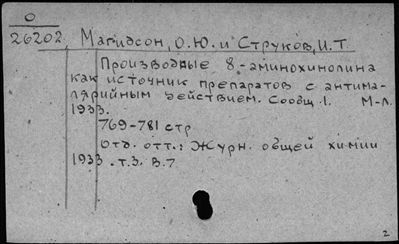 0
26202, Магидсон, О.Ю. и Струков, И.Т.
Производные 8,-аминохинолина
как источник препаратов с антима-
лярийным действием. Сообщ. 1. М-Л.
1933.
769-781 стр
Отд. отт.: Журн. общей химии
1933. т.3. В.7
2